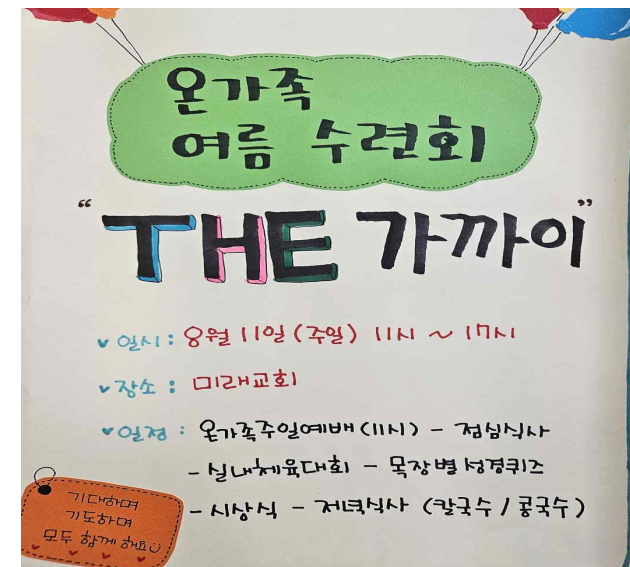 온가족
여름 수련회
“THE 가까이”
일시 : 8월 11일 (주일) 11시 ~ 17시
장소 : 미래교회
일정 : 온가족주일예배 (11시) - 점심식사
- 실내체육대회 - 목장별 성경퀴즈
- 시상식 - 저녁식사 (칼국수 / 콩국수)
기대하며
기도하며
모두 함께 해요